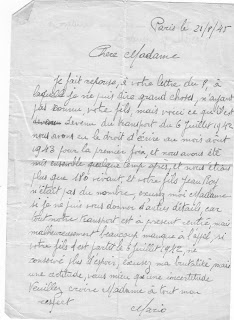 Paris le 21/8/45
Chere Madame
Je fait reponse, à votre lettre du 8, à
laquelle je ne puis dire grand choses, n'ayant
pas connue votre fils, mais voici ce qu'il est
devenu du transport du 6 Juillet 1942
nous avons eu le droit d'écrire au mois aout
1943 pour la premier fois, et nous avons été
mis ensemble quelque temps après, et nous étions
plus que 180 vivant, et votre fils
n'était pas du nombre, excusez moi Madame
si je ne puis vous donner d'autres détails car
tout notre transport est à présent rentré, mais
malheureusement beaucoup manque à l'apel, si
votre fils est partit le 6 Juillet 1942, ne
conservé plus d'espoir, excusez ma brutalité, mais
une certitude, vaux mieu qu'une incertitude
Veuillez croire Madame à tout mon
respect
Mario